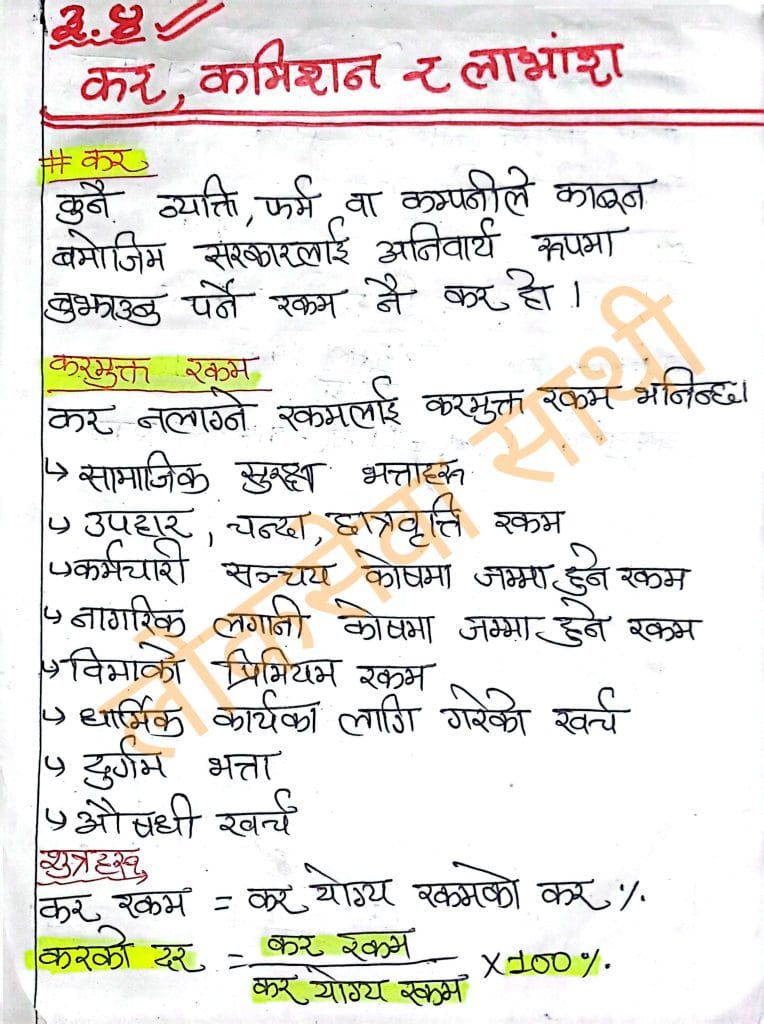 ३.४
कर, कमिशन र लाभांश
# कर
कुनै व्यक्ति, फर्म वा कम्पनीले कानून
बमोजिम सरकारलाई अनिवार्य रूपमा
बुझाउनु पर्ने रकम नै कर हो ।
करमुक्त रकम
कर नलाग्ने रकमलाई करमुक्त रकम भनिन्छ।
↳ सामाजिक सुरक्षा भत्ताहरू
↳ उपहार, चन्दा, छात्रवृत्ति रकम
↳ कर्मचारी सञ्चय कोषमा जम्मा हुने रकम
↳ नागरिक लगानी कोषमा जम्मा हुने रकम
↳ विमाको प्रिमियम रकम
↳ धार्मिक कार्यका लागि गरेको खर्च
↳ दुर्गम भत्ता
↳ औषधी खर्च
शुत्रहरू
कर रकम = कर योग्य रकमको कर %.
करको दर = कर रकम / कर योग्य रकम × 100%.
लोकसेवा साथी